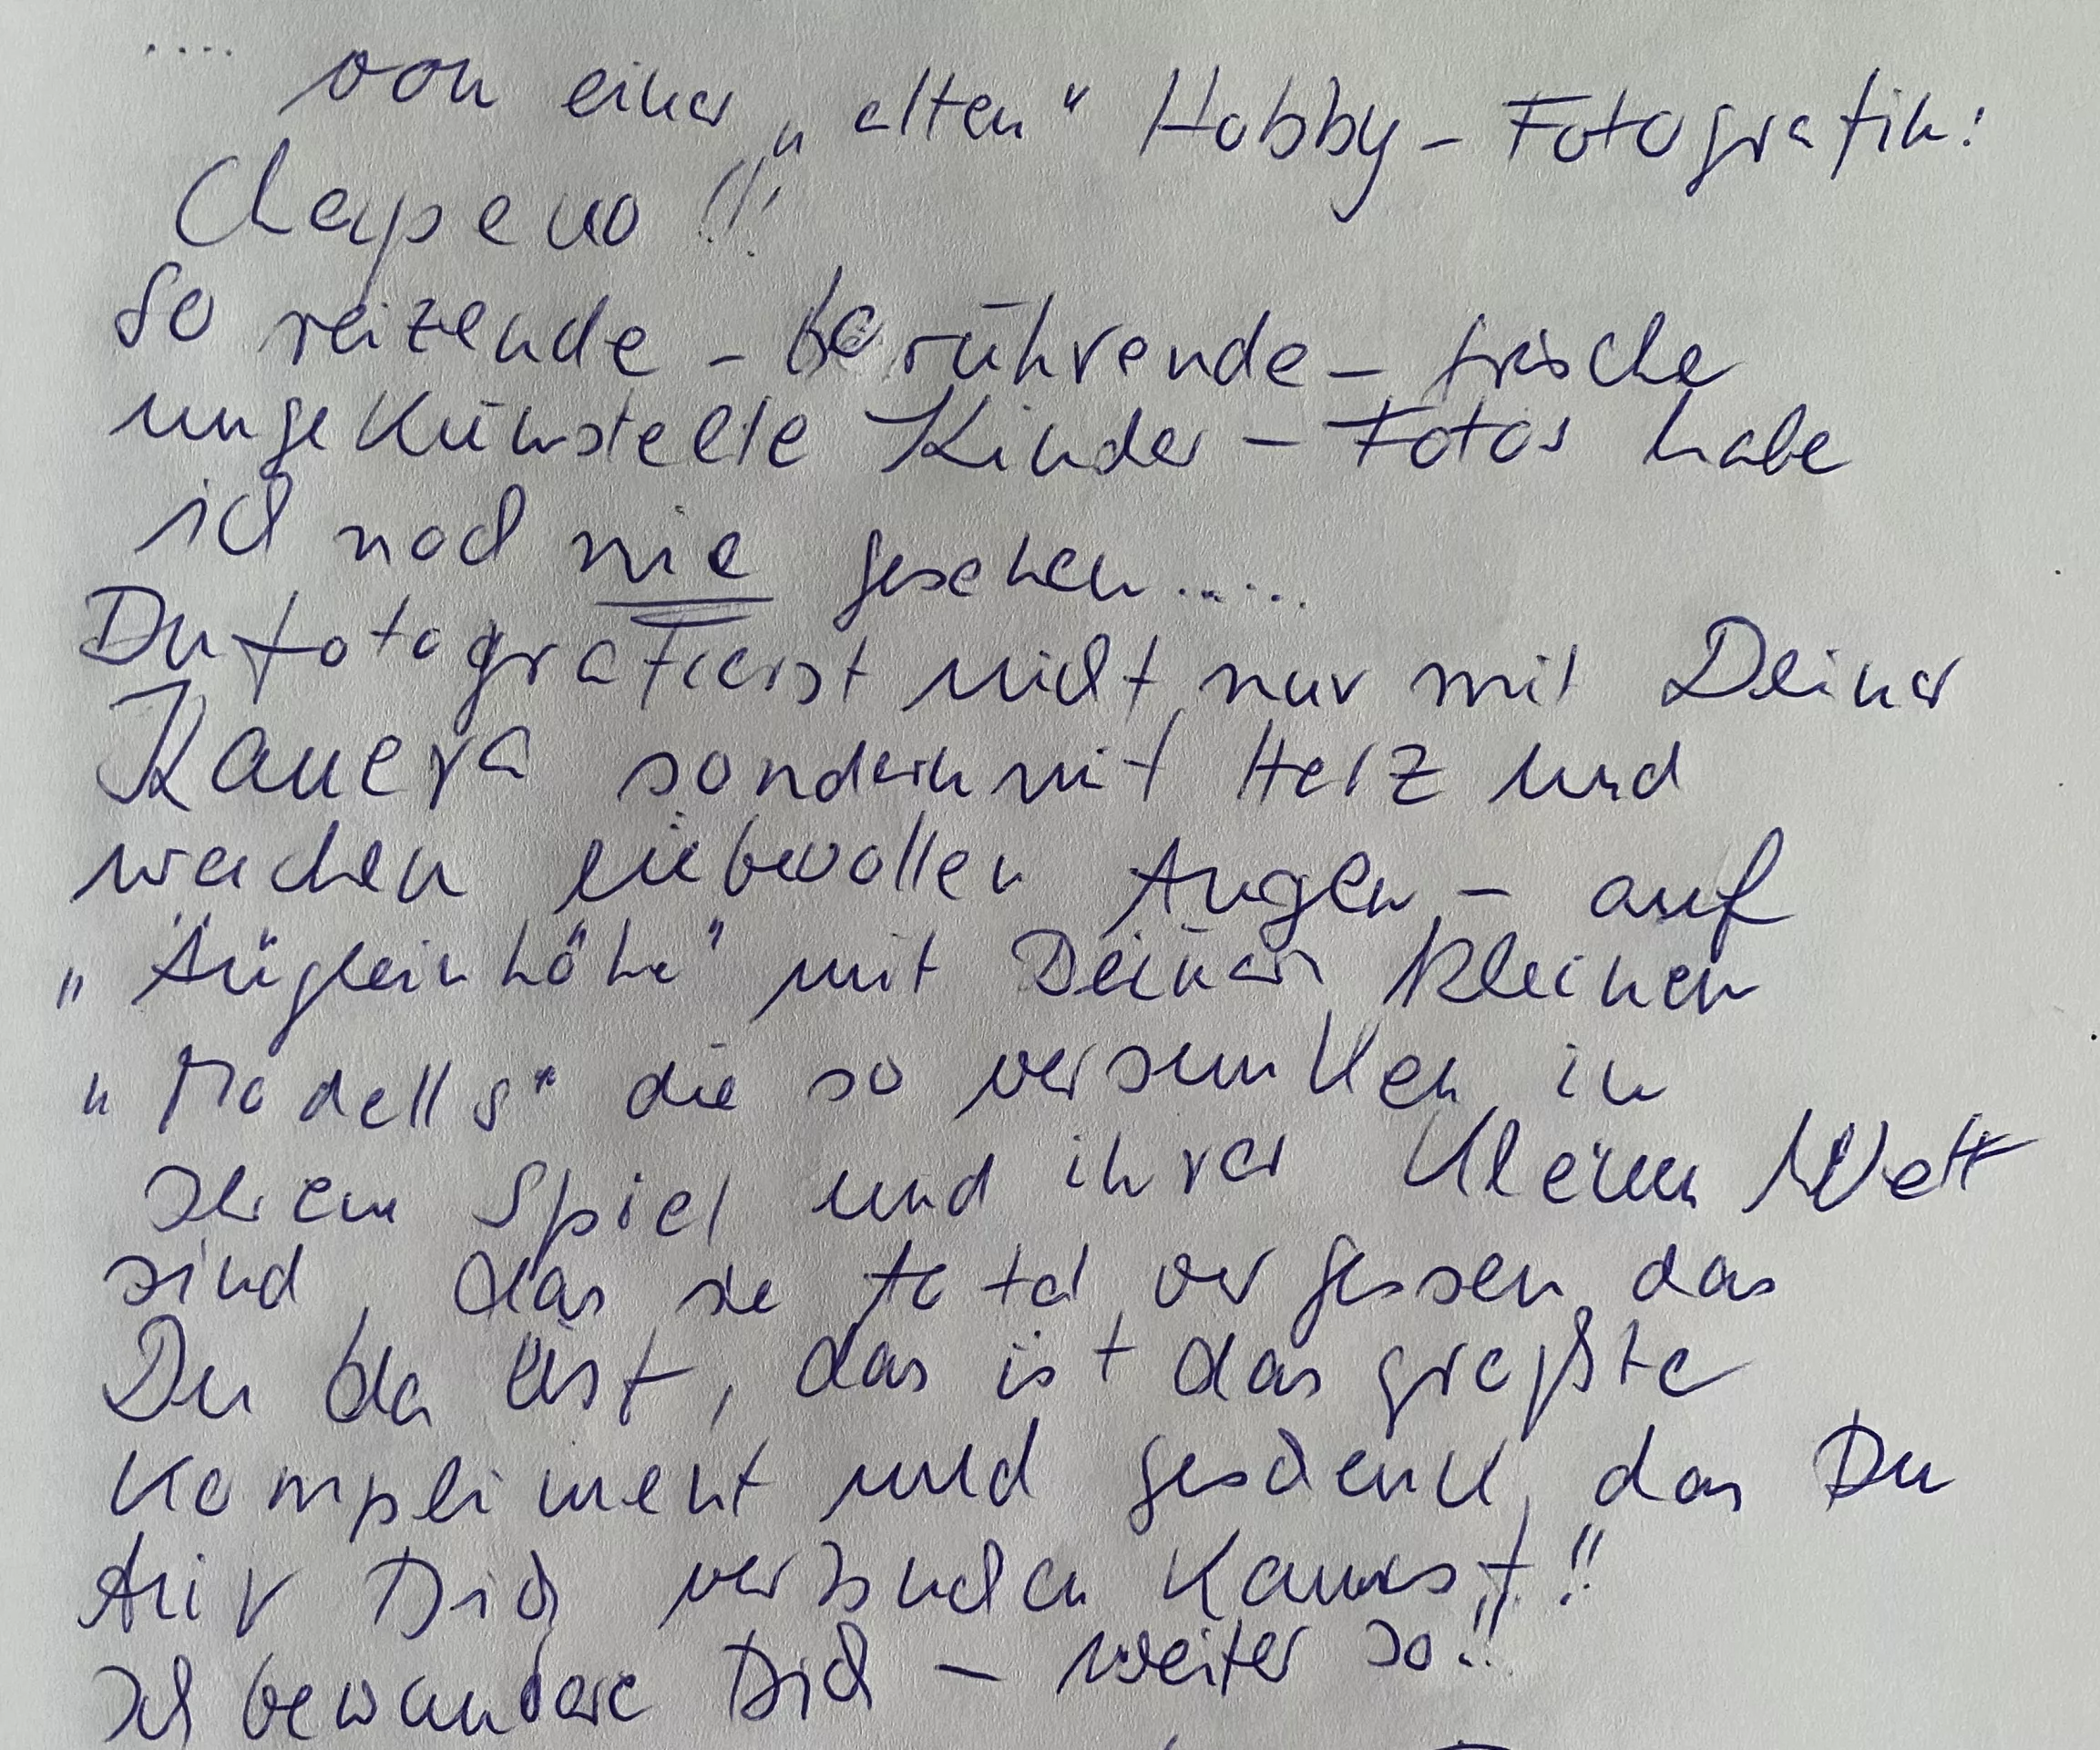 .... von einer „alten“ Hobby-Fotografin:
Chapeau !!!
So reizende - berührende - frische
ungekünstelte Kinder - Fotos habe
ich noch nie gesehen.....
Du fotografierst nicht nur mit Deiner
Kamera sondern mit Herz und
weichen liebevollen Augen - auf
„Äugleinhöhe“ mit Deinen kleinen
„Models“ die so versunken in
ihrem Spiel und ihrer kleinen Welt
sind, das sie total vergessen, das
Du da bist, das ist das größte
Kompliment und geschenk, das Du
für Dich verbuchen kannst!!
Ich bewundere Dich - weiter so!!